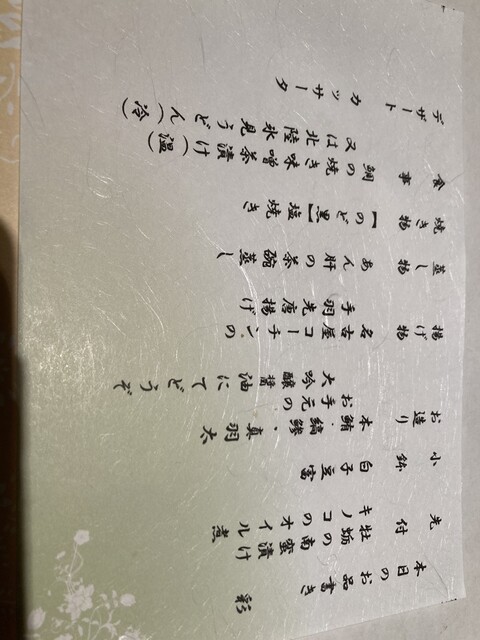 本日のお品書き　彩
先付
牡蛎の南蛮漬け
キノコのオイル煮
小鉢
白子豆富
お造り
本鮪・縞鯵、真羽太
お手元の
大吟醸醤油にてどうぞ
揚げ物
名古屋コーチンの
手羽先唐揚げ
蒸し物
あん肝の茶碗蒸し
焼き物
【のど黒】塩焼き
食事
鯛の焼き味噌茶漬け(温)
又は北陸氷見うどん(冷)
デザート
カッサータ